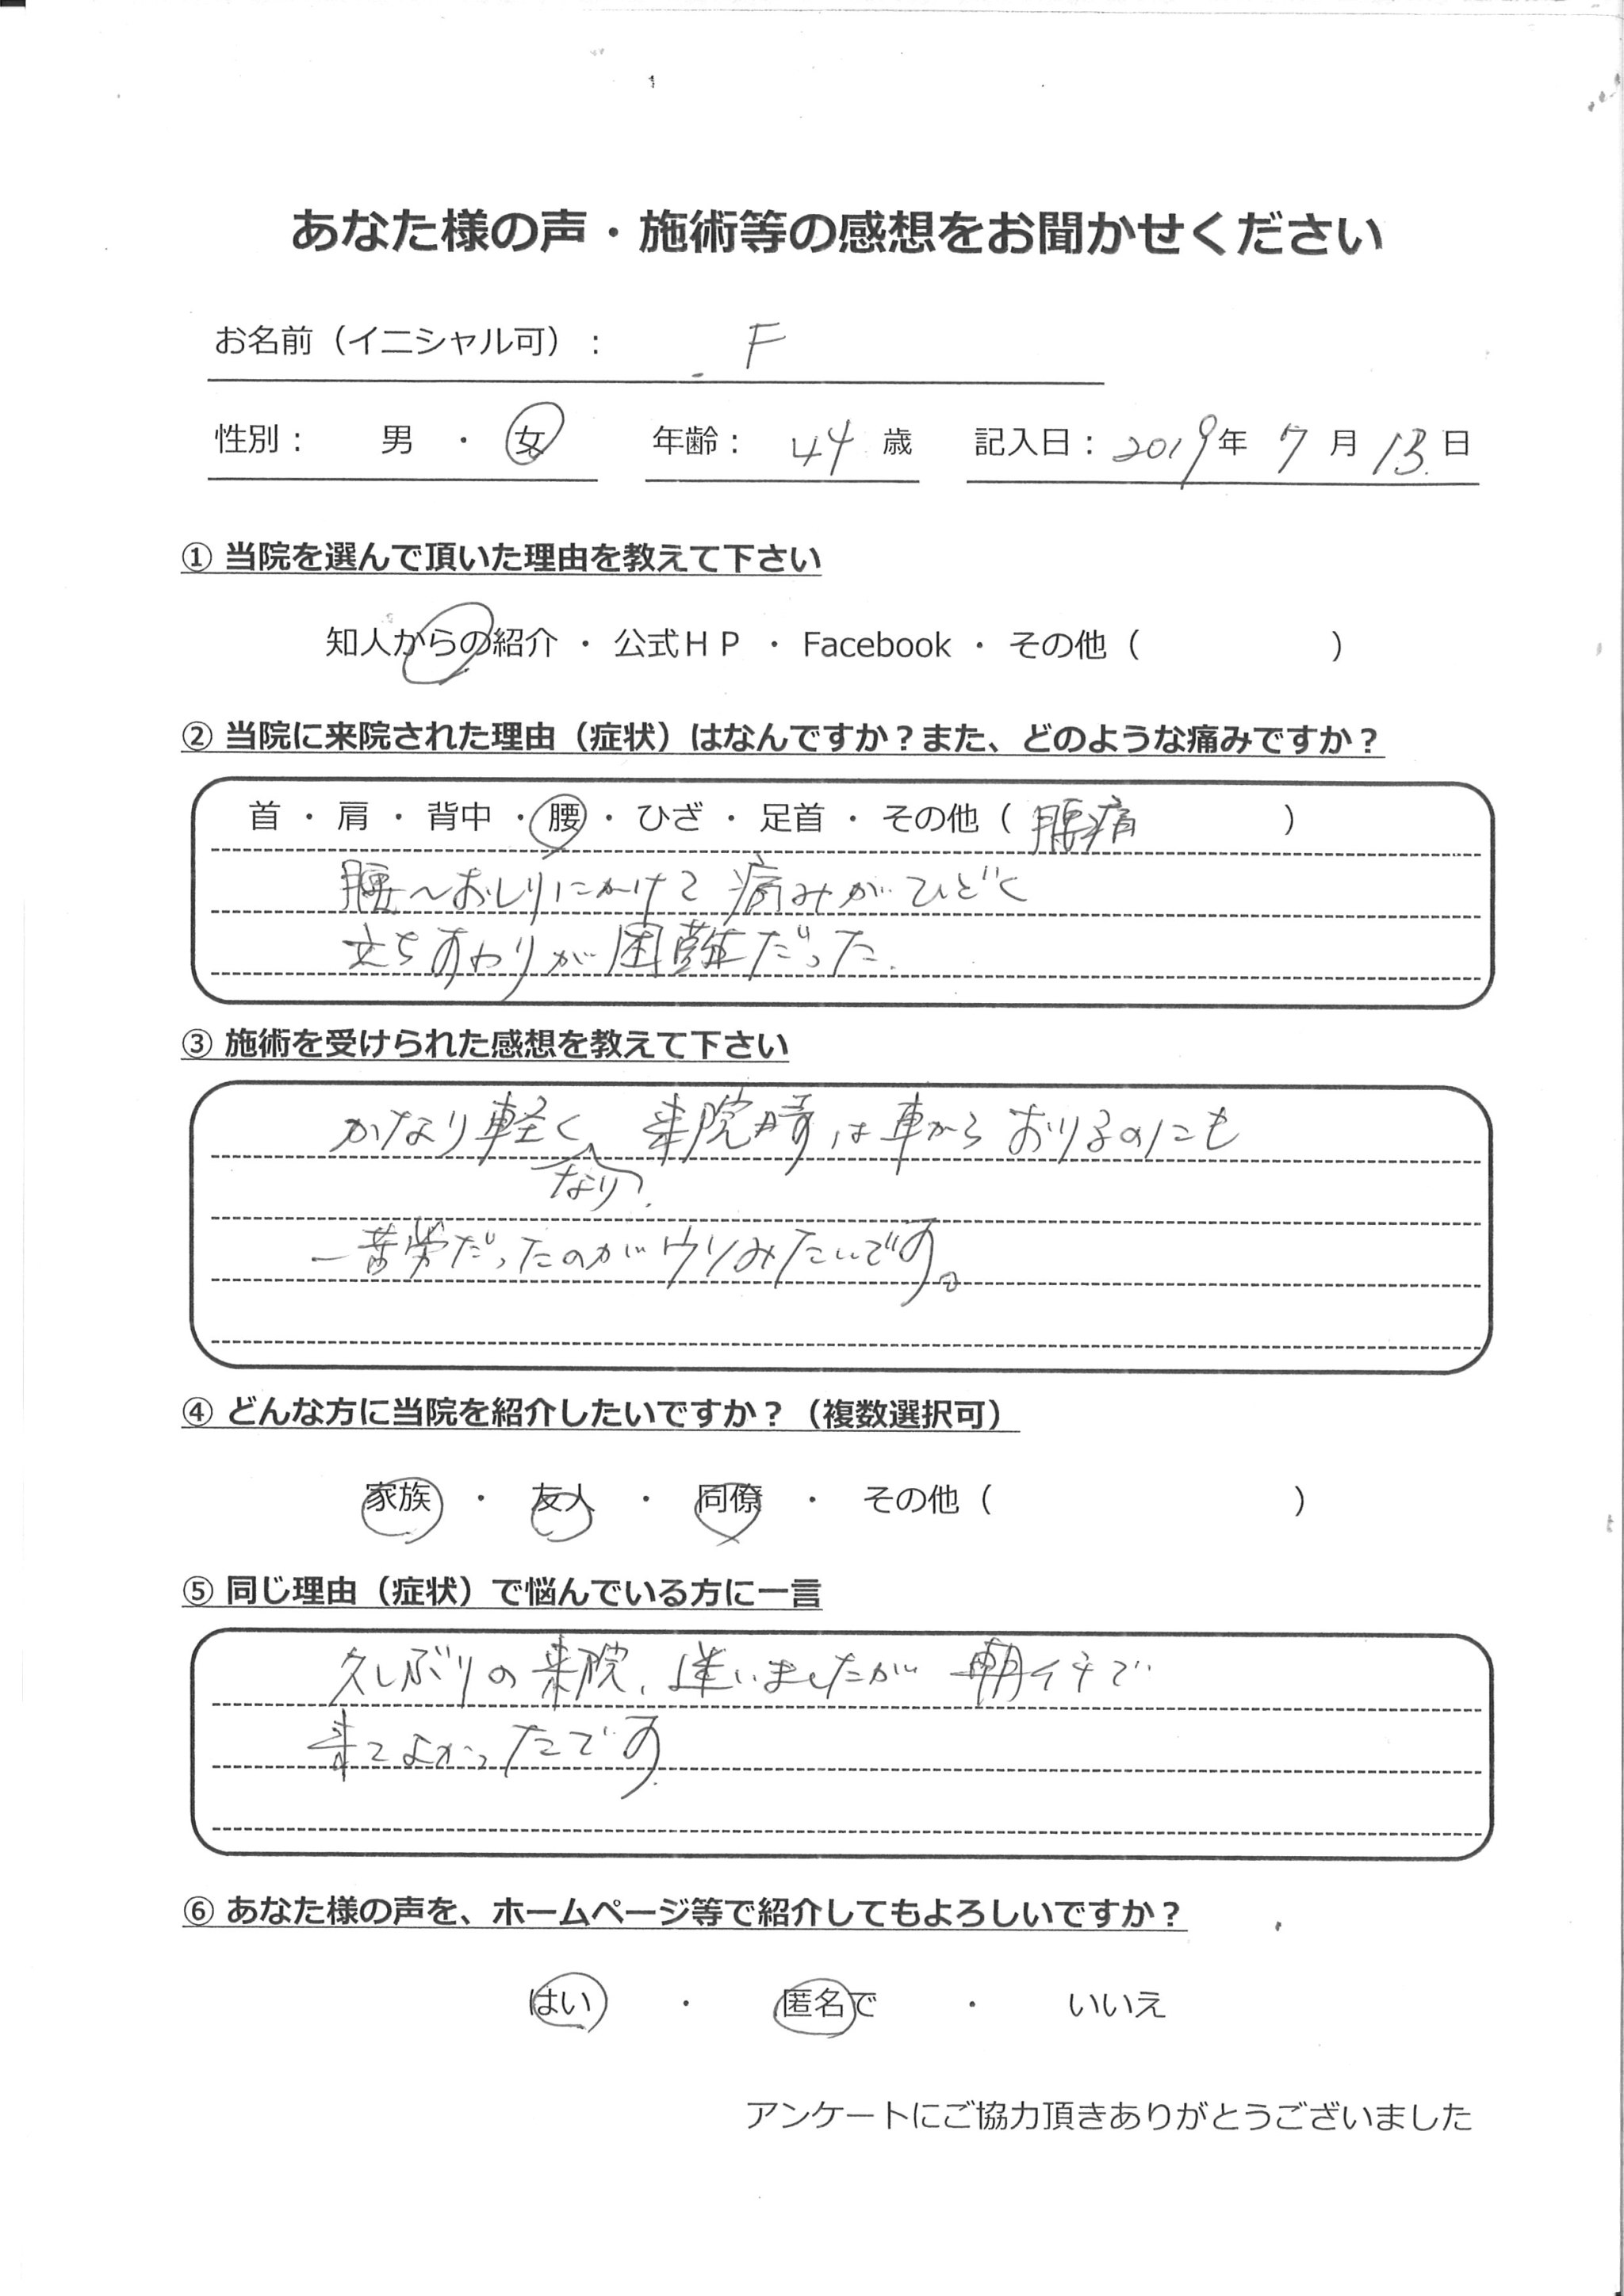 あなた様の声・施術等の感想をお聞かせください
お名前（イニシャル可）： F
性別： 男 ・ 女 年齢： 44 歳 記入日：2019年 7月 13日
① 当院を選んで頂いた理由を教えて下さい
知人からの紹介 ・ 公式ＨＰ ・ Facebook ・ その他（ ）
② 当院に来院された理由（症状）はなんですか？また、どのような痛みですか？
首 ・ 肩 ・ 背中 ・ 腰 ・ ひざ ・ 足首 ・ その他（ 腰痛 ）
腰～おしりにかけて痛みがひどく
立ちすわりが困難だった.
③ 施術を受けられた感想を教えて下さい
かなり軽く 来院時は車からおりるのにも
なり、
一苦労だったのがウソみたいです。
④ どんな方に当院を紹介したいですか？（複数選択可）
家族 ・ 友人 ・ 同僚 ・ その他（ ）
⑤ 同じ理由（症状）で悩んでいる方に一言
久しぶりの来院、迷いましたが 朝イチで
来てよかったです.
⑥ あなた様の声を、ホームページ等で紹介してもよろしいですか？
はい ・ 匿名で ・ いいえ
アンケートにご協力頂きありがとうございました